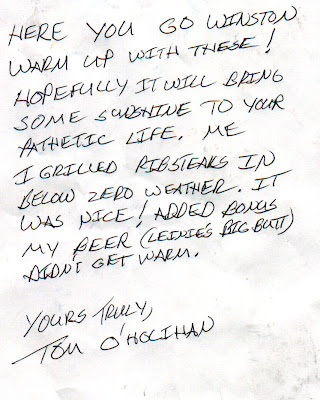 HERE YOU GO WINSTON
WARM UP WITH THESE!
HOPEFULLY IT WILL BRING
SOME SUNSHINE TO YOUR
PATHETIC LIFE. ME
I GRILLED RIBSTEAKS IN
BELOW ZERO WEATHER. IT
WAS NICE! ADDED BONUS
MY BEER (LEINIES BIG BUTT)
DIDN'T GET WARM.
YOURS TRULY,
TOM O'HOLIHAN